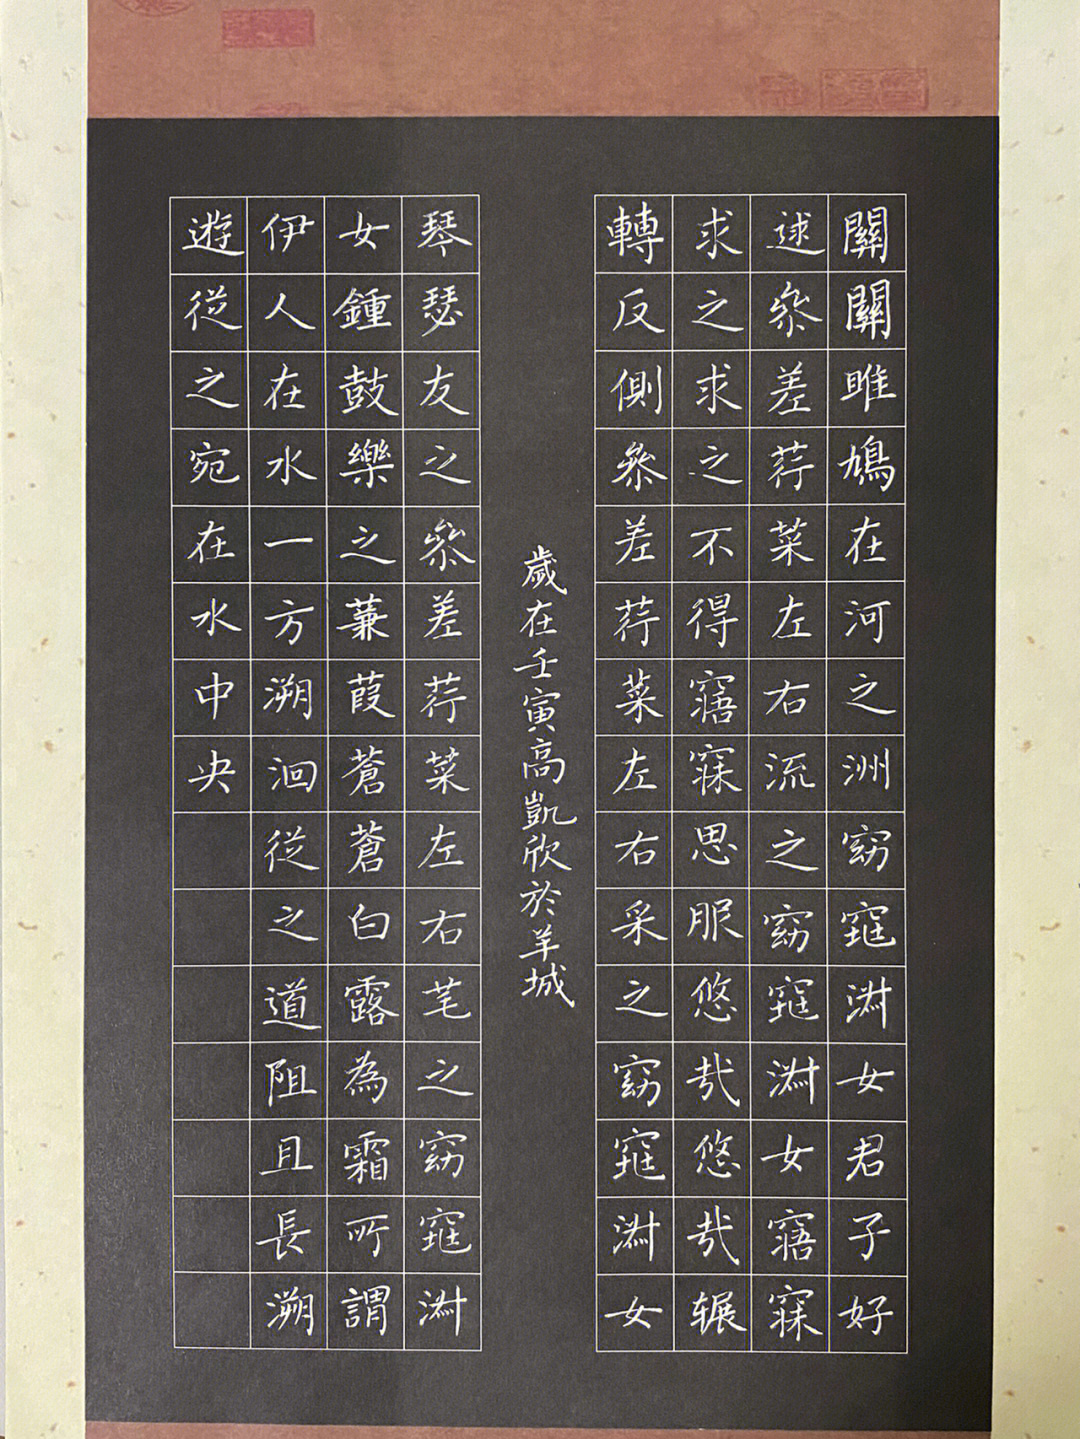 關關雎鳩在河之洲窈窕淑女君子好
逑參差荇菜左右流之窈窕淑女寤寐
求之求之不得寤寐思服悠哉悠哉辗
轉反側參差荇菜左右采之窈窕淑女
歲在壬寅高凱欣於羊城
琴瑟友之參差荇菜左右芼之窈窕淑
女鍾鼓樂之蒹葭蒼蒼白露為霜所謂
伊人在水一方溯洄從之道阻且長溯
遊從之宛在水中央